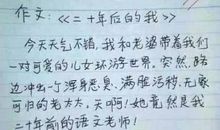 作文:《二十年后的我》
今天天气不错,我和老婆带着我们
一对可爱的儿女环游世界。突然,路
边冲出一个浑身恶臭、满脸污秽、无家
可归的老太太,天啊!她竟然是我
二十年前的语文老师!